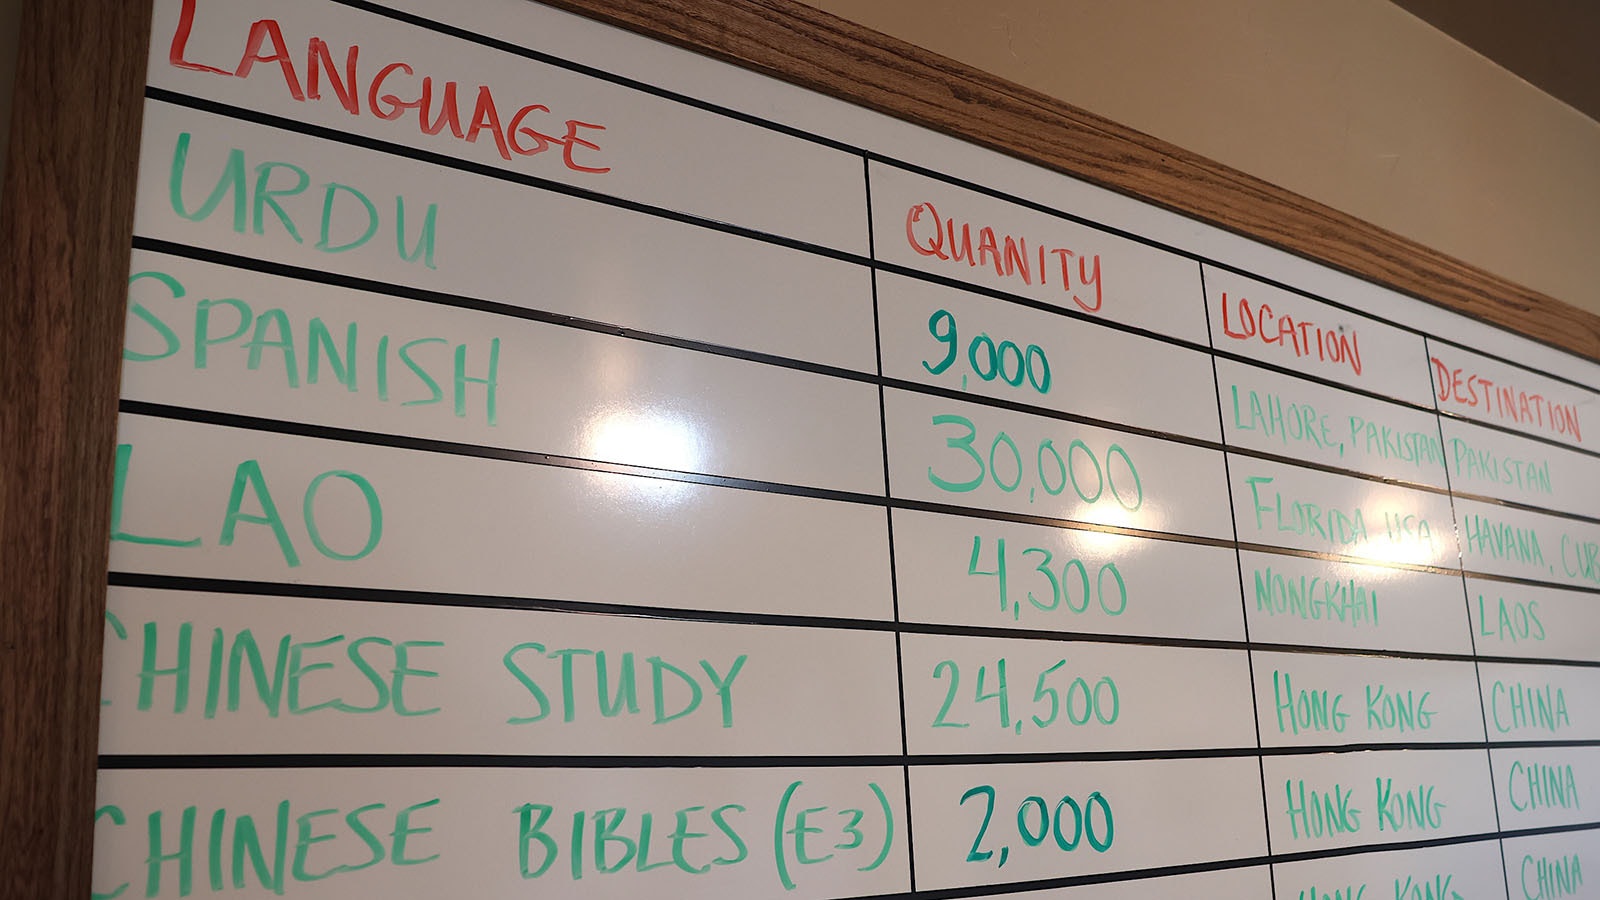 LANGUAGE QUANITY LOCATION DESTINATION
URDU 9,000 LAHORE, PAKISTAN PAKISTAN
SPANISH 30,000 FLORIDA USA HAVANA, CUB
LAO 4,300 NONGKHAI LAOS
CHINESE STUDY 24,500 HONG KONG CHINA
CHINESE BIBLES (E3) 2,000 HONG KONG CHINA
HONG KONG CHINA